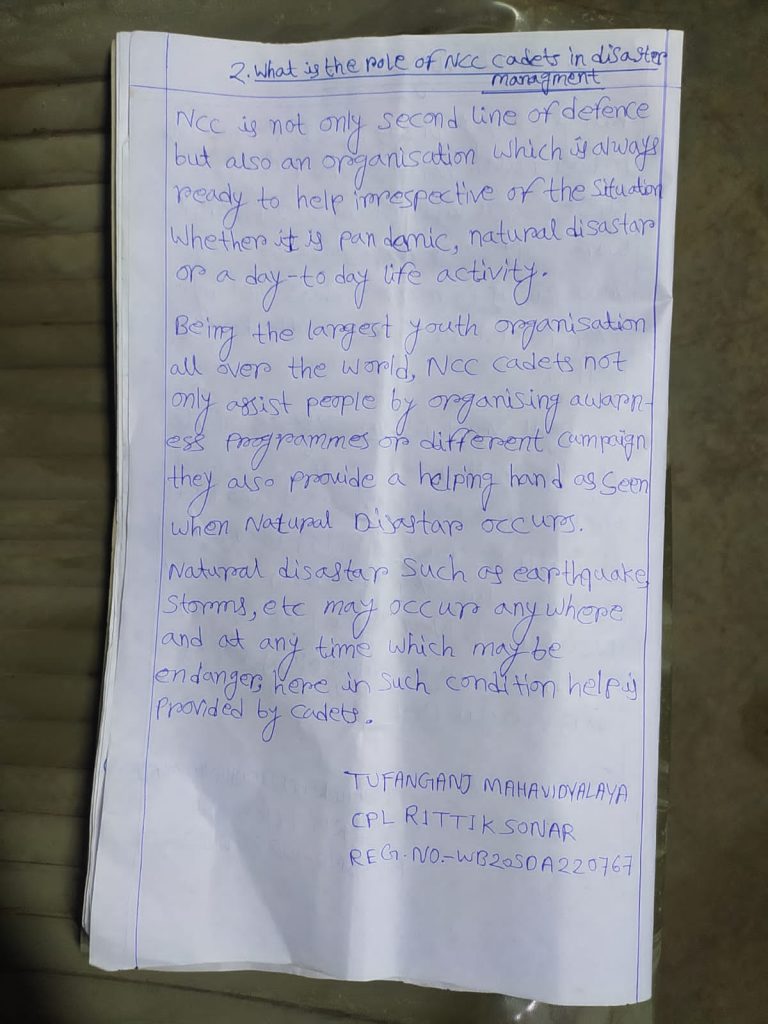 2. What is the role of NCC cadets in disaster
managment
NCC is not only second line of defence
but also an organisation which is always
ready to help irrespective of the situation
Whether it is pandemic, natural disastar
or a day-to day life activity.
Being the largest youth organisation
all over the world, NCC cadets not
only assist people by organising awarn-
ess programmes or different campaign
they also provide a helping hand as seen
when Natural Disastar occurs.
Natural disastar such as earthquake,
storms, etc may occur anywhere
and at any time which may be
endanger, here in such condition help is
provided by cadets.
TUFANGANJ MAHAVIDYALAYA
CPL RITTIK SONAR
REG. NO.-WB20SDA220767